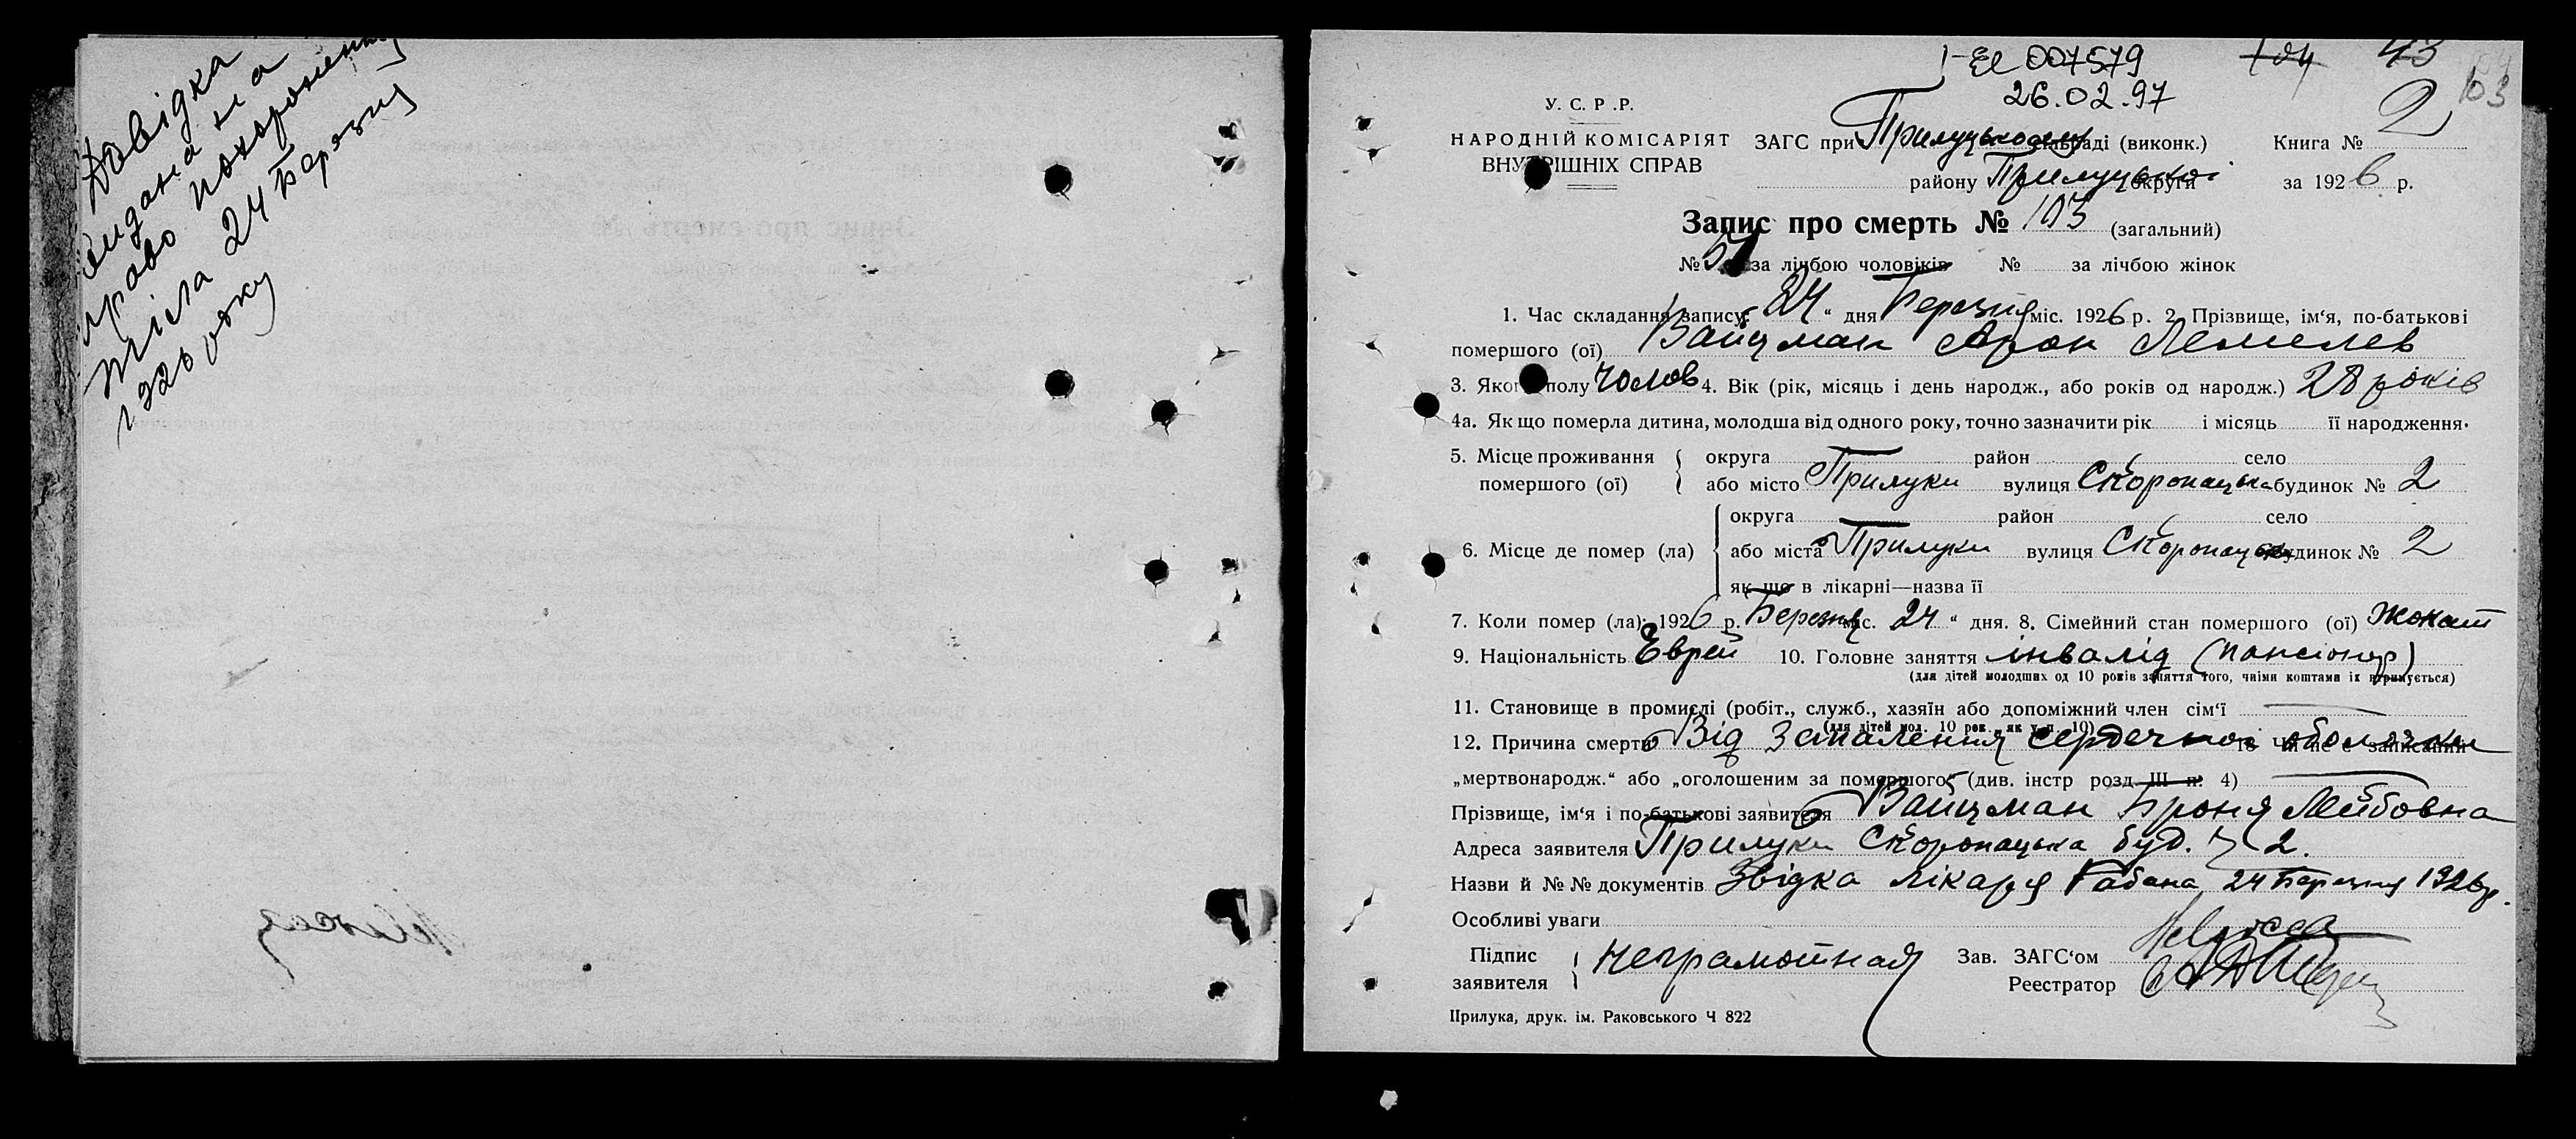 Довідка
видана на
право похоронення
тіла 24 Березня
1926 року
І-ЕЛ 007579
26.02.97
104 43
103
У. С. Р. Р.
НАРОДНІЙ КОМІСАРІЯТ
ВНУТРІШНІХ СПРАВ
ЗАГС при Прилуцькому сільраді (виконк.) Книга № 2
району Прилуцької округи за 1926 р.
Запис про смерть № 103 (загальний)
№ 51 за лічбою чоловіків № за лічбою жінок
1. Час складання запису: 24 “ дня Березня міс. 1926 р. 2. Прізвище, ім‘я, по-батькові
помершого (ої) Вайцман Арон Лемелев
3. Якого полу чолов 4. Вік (рік, місяць і день народж., або років од народж.) 28 років
4а. Як що померла дитина, молодша від одного року, точно зазначити рік і місяць її народження.
5. Місце проживання помершого (ої) { округа район село
або місто Прилуки вулиця Скоропацька будинок № 2
6. Місце де помер (ла) { округа район село
або міста Прилуки вулиця Скоропацька будинок № 2
як що в лікарні—назва її
7. Коли помер (ла) 1926 р. Березня міс. 24 “ дня. 8. Сімейний стан помершого (ої) жонат
9. Національність Еврей 10. Головне заняття інвалід (пансіонер)
(для дітей молодших од 10 років заняття того, чиїми коштами їх втримується)
11. Становище в промислі (робіт., служб., хазяїн або допоміжний член сім‘ї
(для дітей мол. 10 рок., як у п. 10)
12. Причина смерти Від запалення сердечної оболочки 13. Чи не є записаний
„мертвонародж.“ або „оголошеним за помершого“ (див. інстр розд. III п. 4)
Прізвище, ім‘я і по-батькові заявителя Вайцман Броня Лейбовна
Адреса заявителя Прилуки Скоропацька буд. № 2.
Назви й №№ документів Звідка лікаря Рабана 24 Березня 1926 р.
Особливі уваги
Підпис заявителя } неграмотная Зав. ЗАГС‘ом
Реестратор
Прилука, друк. ім. Раковського Ч 822